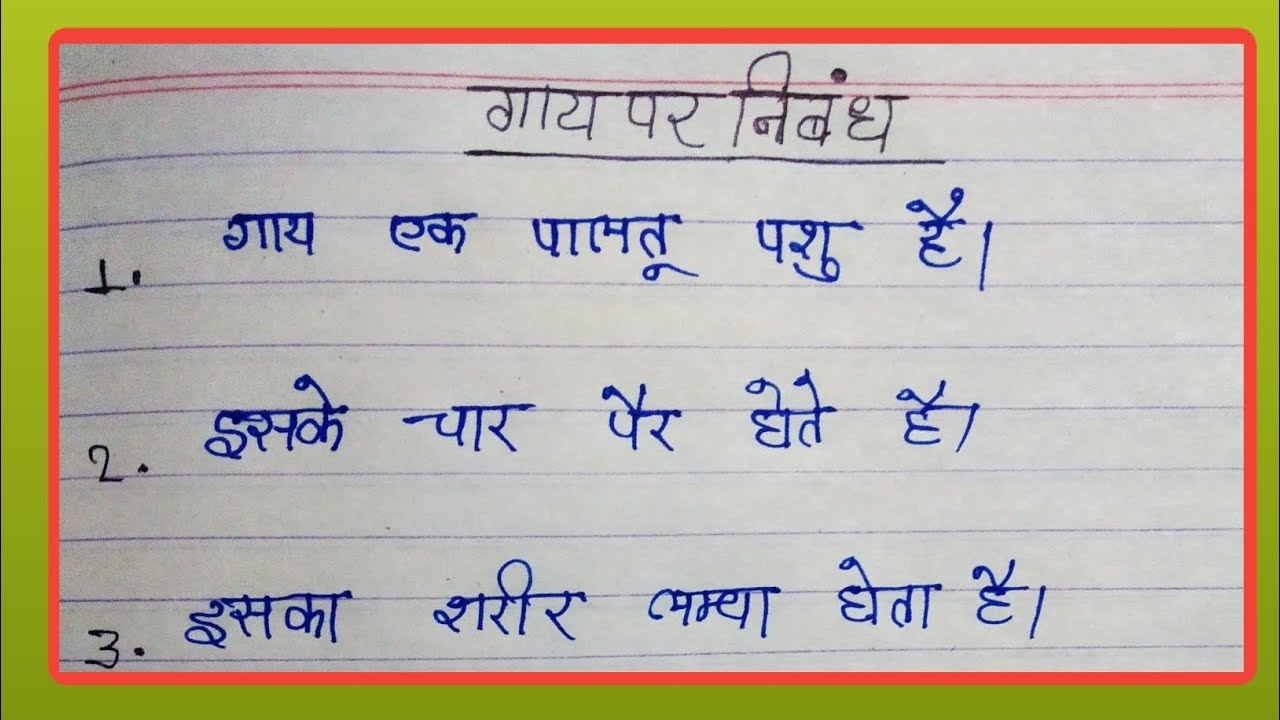 गाय पर निबंध
1. गाय एक पालतू पशु है।
2. इसके चार पैर होते है।
3. इसका शरीर लम्बा होता है।